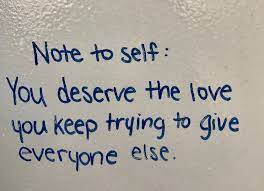 Note to self:
You deserve the love
you keep trying to give
everyone else.